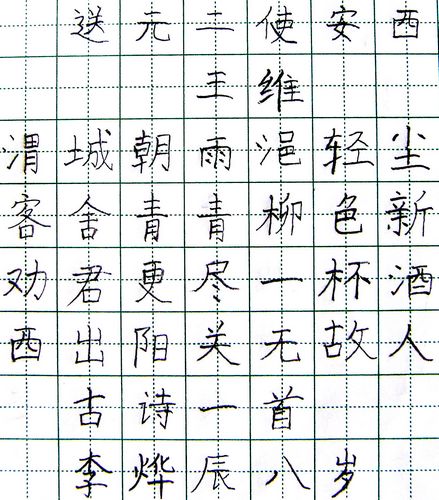 送元二使安西
王维
渭城朝雨浥轻尘
客舍青青柳色新
劝君更尽一杯酒
西出阳关无故人
古诗一首
李烨辰八岁